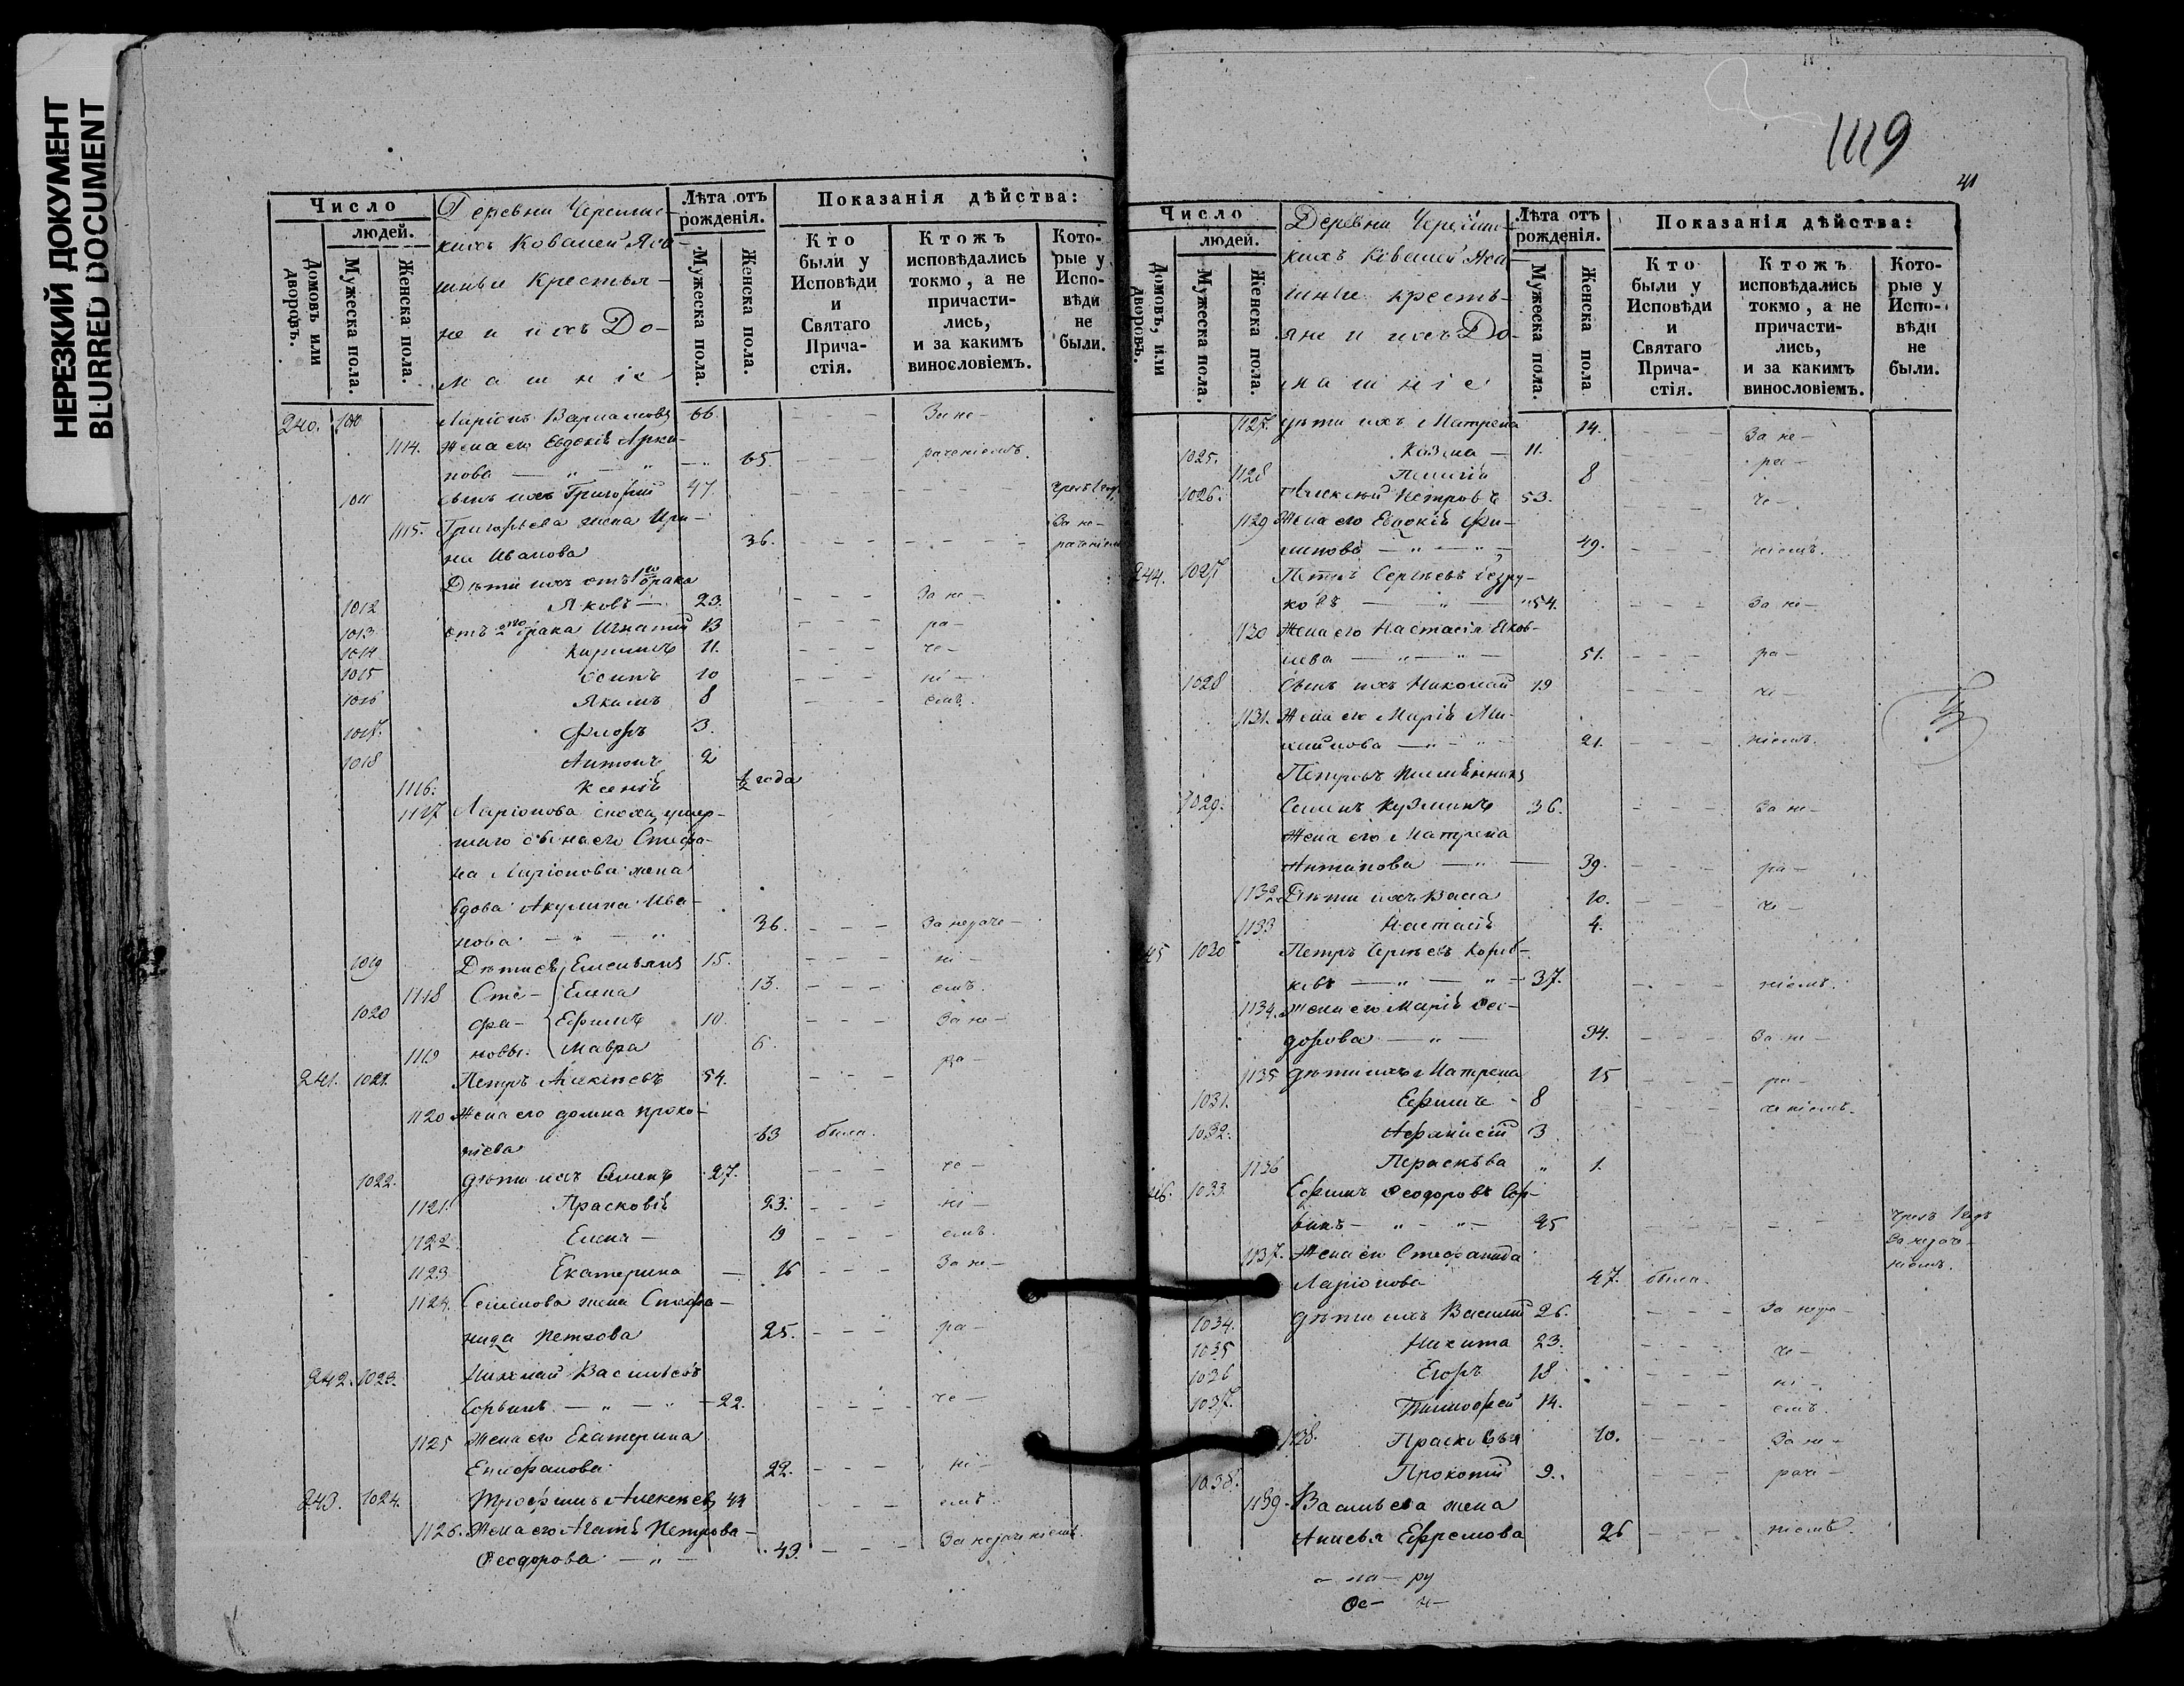 НЕРЕЗКИЙ ДОКУМЕНТ
BLURRED DOCUMENT
Число
людей.
Домовъ или дворовъ.
Мужеска пола.
Женска пола.
Деревни
Ковалей
крестья-
не и ихъ До-
машніе
Лѣта отъ рожденія.
Мужеска пола.
Женска пола.
Показанія дѣйства:
Кто были у Исповѣди и Святаго Прича-стія.
Ктожъ исповѣдались токмо, а не причасти-лись, и за какимъ винословіемъ.
Кото-рые у Испо-вѣди не были.
240. 1010 Ларіонъ Варламовъ 66. За не-
1114. Жена его Евдокія
65. раченіемъ.
1011 сынъ ихъ Григорій 47.
1115. Григорьева жена Ири- За не-
на Иванова 36. раченіемъ
Дѣти ихъ отъ 1го брака
1012 Яковъ — 23. За не-
1013 отъ 2го брака Игнатій 13 ра-
1014 Кириллъ 11. че-
1015 Осипъ 10 ні-
1016 Якимъ 8 емъ.
1017. Флоръ 3.
1018 Антонъ 2
1116. Ксенія ½ года
1117 Ларіонова сноха, умер-
шаго сына его Стефа-
на Ларіонова жена
вдова Акулина Ива-
нова 36. За нераче-
1019 Дѣти Емельянъ 15. ні-
1118 Сте- Елена 13. емъ.
1020 фа- Ефимъ 10. За не-
1119 новы: Мавра 6. ра-
241. 1021. Петръ Алексѣевъ 54.
1120 Жена его Домна Проко-
піева 63 была.
1022. дѣти ихъ Семенъ 27. че-
1121. Прасковія 23. ні-
1122 Елена — 19 емъ.
1123 Екатерина — 16 За не-
1124. Семенова жена Стефа-
нида Петрова 25. ра-
242. 1023. Николай Васильевъ
22. че-
1125 Жена его Екатерина
Епифанова 22. ні-
243. 1024. Трофимъ Алексѣевъ 44 емъ.
1126. Жена его Агафія Петрова-
Ѳеодорова 43. За нераченіемъ.
1119
41
Число
людей.
Домовъ, или дворовъ.
Мужеска пола.
Женска пола.
Деревни
крестъ-
яне и ихъ До-
машніе
Лѣта отъ рожденія.
Мужеска пола.
Женска пола
Показанія дѣйства:
Кто были у Исповѣди и Святаго Прича-стія.
Ктожъ исповѣдались токмо, а не причасти-лись, и за какимъ винословіемъ.
Кото-рые у Испо-вѣди не были.
1127. дѣти ихъ Матрена 14. За не-
1025. Козма — 11. ра-
1128 8
1026. Алексѣй Петровъ 53. че-
1129 Жена его Евдокія Фи-
липова 49. ніемъ.
244. 1027 Петръ Сергѣевъ
54. За не-
1130 Жена его Настасія Яков-
лева 51. ра-
1028 Сынъ ихъ Николай 19 че-
1131. Жена его Марія Ми-
хайлова 21. ніемъ.
Петровъ племянникъ
1029. Семенъ Кузминъ 36. За не-
Жена его Матрена
Антипова 39. ра-
1132 Дѣти ихъ Васса 10. че-
1133 Настасія 4.
1030 Петръ Сергѣевъ
37. ніемъ.
1134. Жена его Марія Ѳео-
дорова 34. За не-
1135 дѣти ихъ Матрена 15 ра-
1031. Ефимъ 8 ченіемъ.
1032. Афанасій 3
1136 Параскѣва 1.
1033. Ефимъ Ѳеодоровъ
чрезъ
За нераче-
1137. Жена его Стефанида ніемъ.
Ларіонова 47. была.
1034. дѣти ихъ Василій 26. За нера-
1035 Никита 23. че-
1036 Егоръ 18 ні-
1037. Тимофей 14. емъ.
1138. Прасковья 10. За не-
1038. Прокопій 9. раче-
1139. Васильева жена
Анисья Ефремова 26 ніемъ.